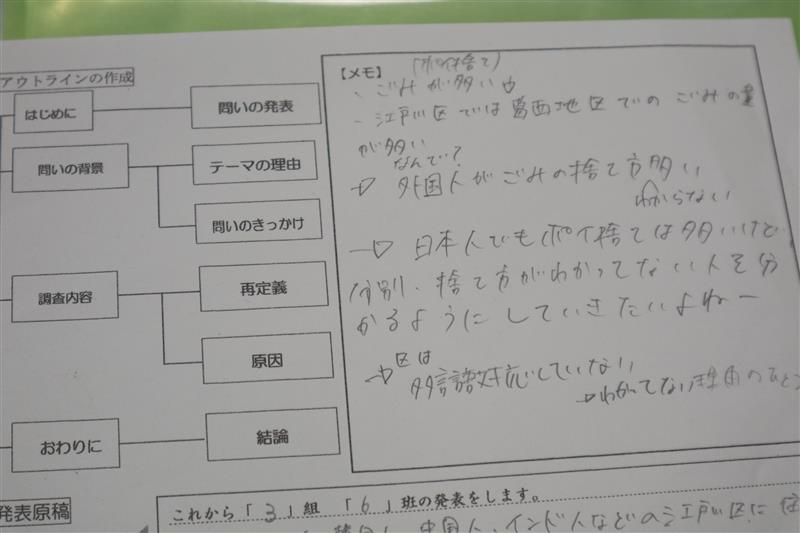 アウトラインの作成
はじめに
問いの発表
問いの背景
テーマの理由
問いのきっかけ
調査内容
再定義
原因
おわりに
結論
【メモ】
(ポイ捨て)
・ごみが多い
・江戸川区では葛西地区でのごみの量
が多い
なんで?
→ 外国人がごみの捨て方多い
わからない
→ 日本人でもポイ捨ては多いけど
分別、捨て方がわかってない人を分
かるようにしていきたいよねー
→ 区は
多言語対応していない
→わかってない理由のひとつ
発表原稿
これから「3」組 「6」班の発表をします。
中国人、インド人などの江戸川区に住